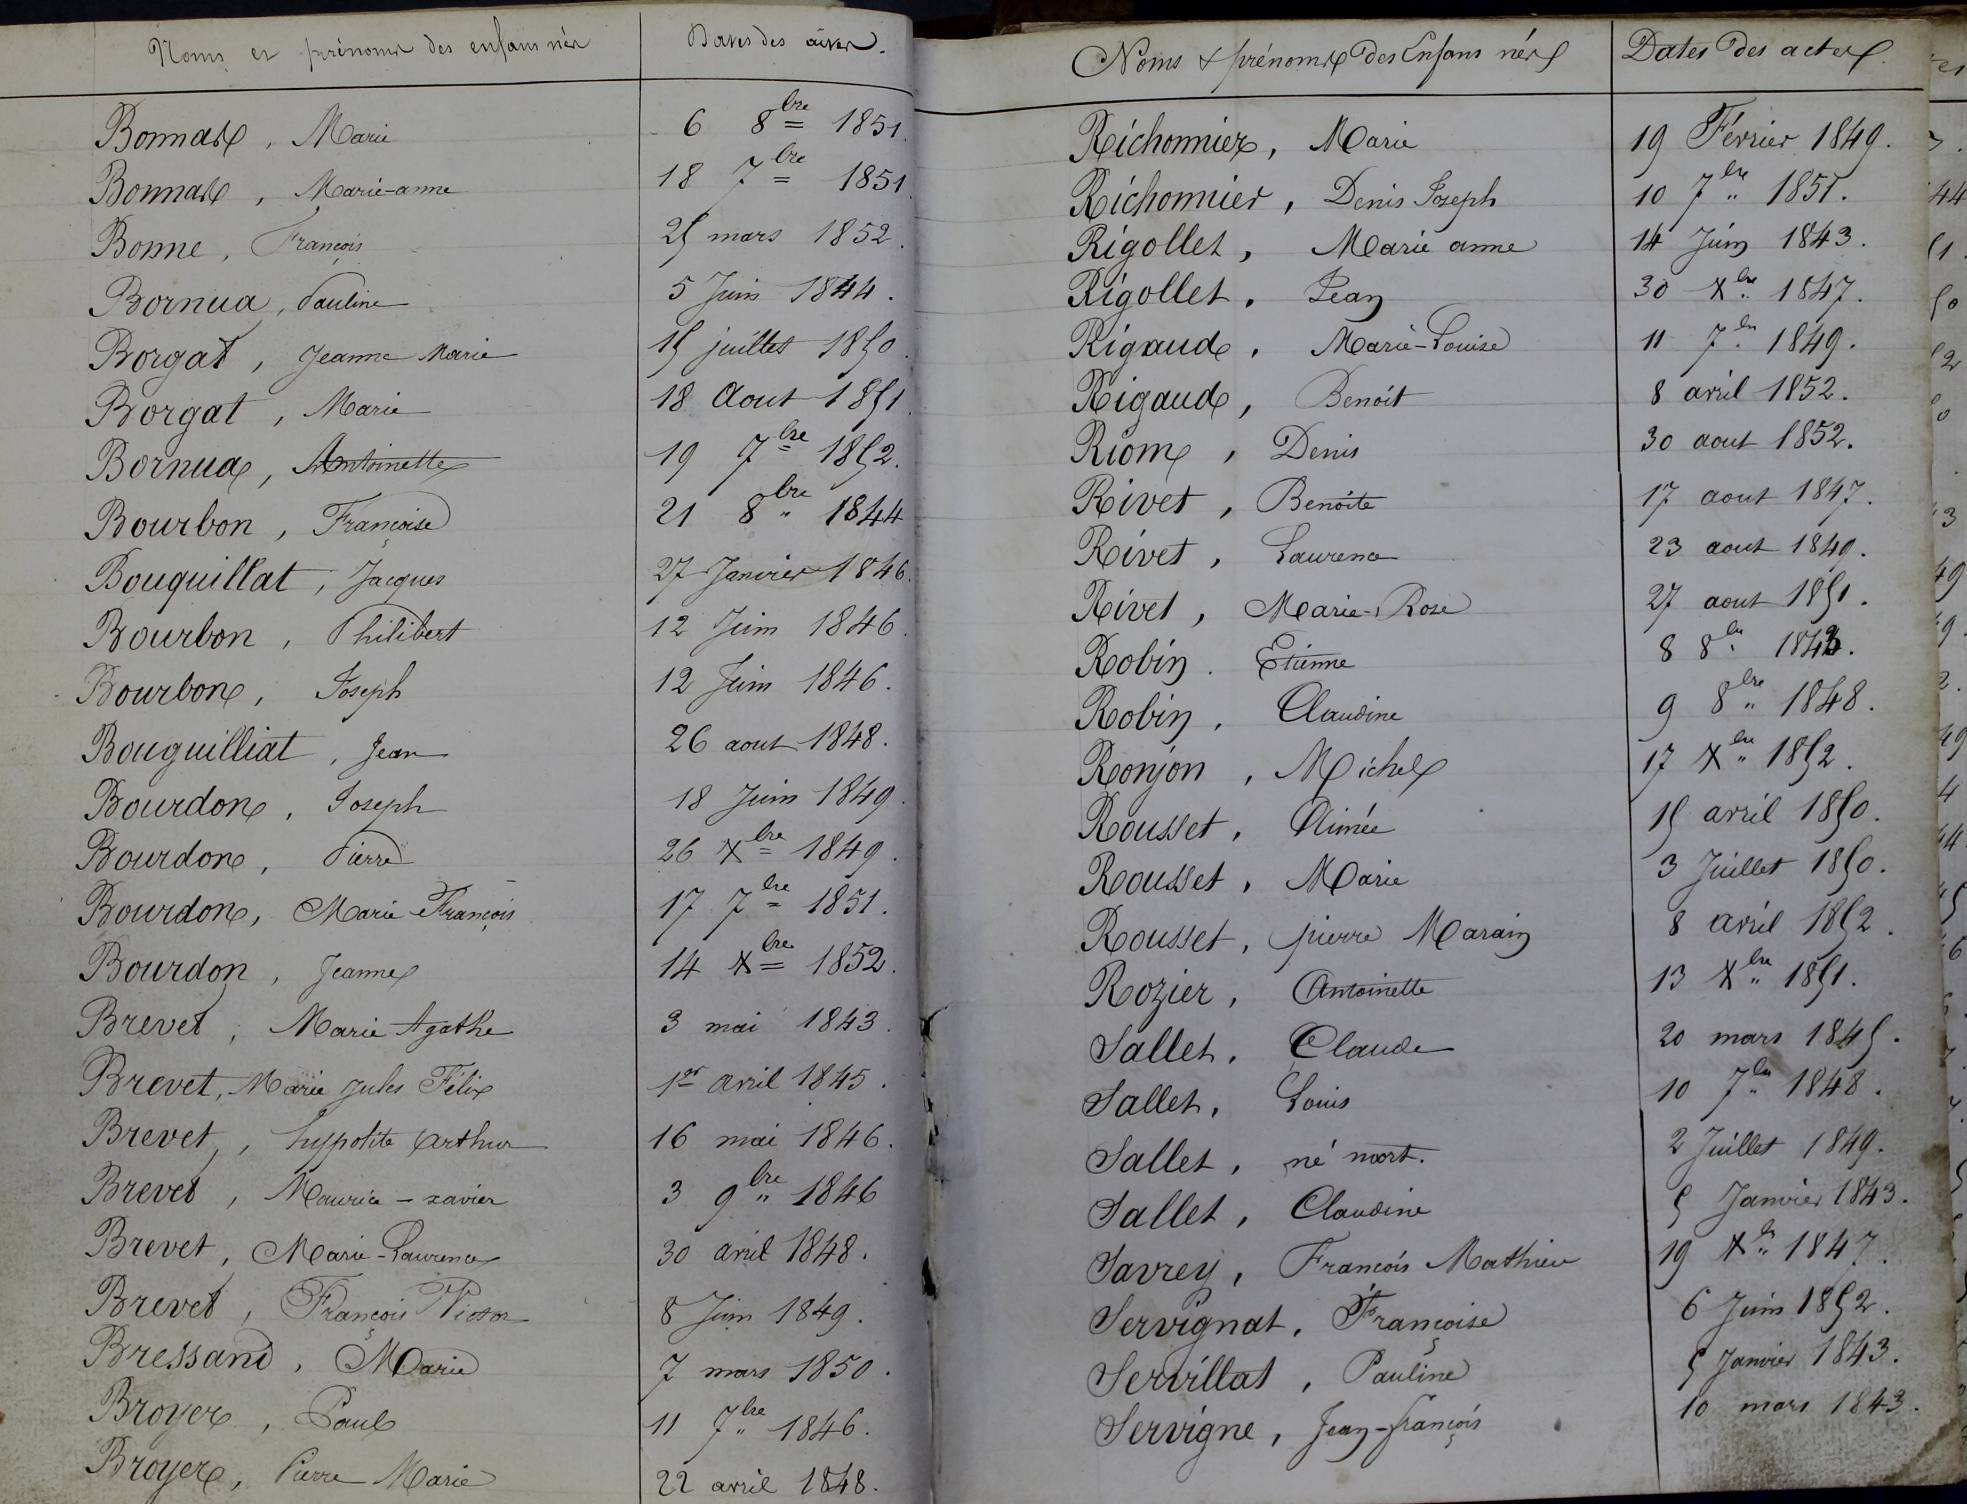 Noms et prénoms des enfans nés Dates des actes.
Bonnard, Marie 6 8bre 1851.
Bonnard, Marie-anne 18 7bre 1851.
Bonne, François 25 mars 1852.
Bornua, Pauline 5 Juin 1844.
Borgat, Jeanne Marie 15 juillet 1850.
Borgat, Marie 18 Aout 1851.
Bornua, Antoinette 19 7bre 1852.
Bourbon, Françoise 21 8bre 1844
Bouquillat, Jacques 27 Janvier 1846.
Bourbon, Philibert 12 Juin 1846.
Bourbon, Joseph 12 Juin 1846.
Bouguilliat, Jean 26 aout 1848.
Bourdon, Joseph 18 Juin 1849.
Bourdon, Pierre 26 Xbre 1849.
Bourdon, Marie François 17 7bre 1851.
Bourdon, Jeanne 14 Xbre 1852.
Brevet, Marie Agathe 3 mai 1843.
Brevet, Marie Jules Félix 1er avril 1845.
Brevet, hypolite arthur 16 mai 1846.
Brevet, Maurice-xavier 3 9bre 1846
Brevet, Marie-Laurence 30 avril 1848.
Brevet, François Victor 8 Juin 1849.
Bressand, Marie 7 mars 1850.
Broyer, Paul 11 7bre 1846.
Broyer, Pierre Marie 22 avril 1848.
Noms & prénoms des Enfans nés Dates des actes.
Richonnier, Marie 19 Février 1849.
Richonnier, Denis Joseph 10 7bre 1851.
Rigollet, Marie anne 14 Juin 1843.
Rigollet, Jean 30 Xbre 1847.
Rigaud, Marie-Louise 11 7bre 1849.
Rigaud, Benoît 8 avril 1852.
Riom, Denis 30 aout 1852.
Rivet, Benoîte 17 aout 1847.
Rivet, Laurence 23 aout 1849.
Rivet, Marie-Rose 27 aout 1851.
Robin. Etienne 8 8bre 1843.
Robin, Claudine 9 8bre 1848.
Ronjon, Michel 17 Xbre 1852.
Rousset, Aimée 15 avril 1850.
Rousset, Marie 3 Juillet 1850.
Rousset, pierre Marain 8 avril 1852.
Rozier, Antoinette 13 Xbre 1851.
Sallet, Claude 20 mars 1845.
Sallet, Louis 10 7bre 1848.
Sallet, né mort. 2 Juillet 1849.
Sallet, Claudine 5 Janvier 1843.
Savrey, François Mathieu 19 Xbre 1847.
Servignat, Françoise 6 Juin 1852.
Servillat, Pauline 5 Janvier 1843.
Servigne, Jean-françois 10 mars 1843.